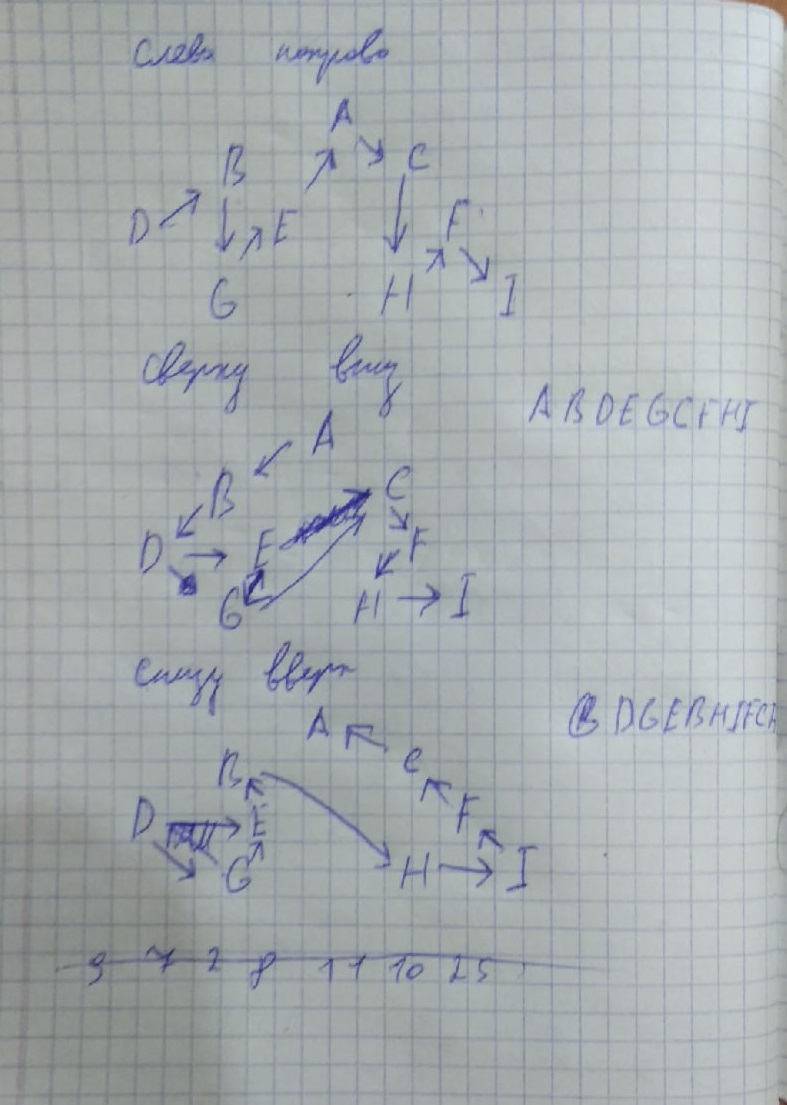 слева направо
A
B C
D E F
G H I
сверху вниз
ABDEGCFHI
A
B C
D E F
G H I
снизу вверх
DGEBHIFCA
A
B C
D E F
G H I
9 7 2 8 11 10 25